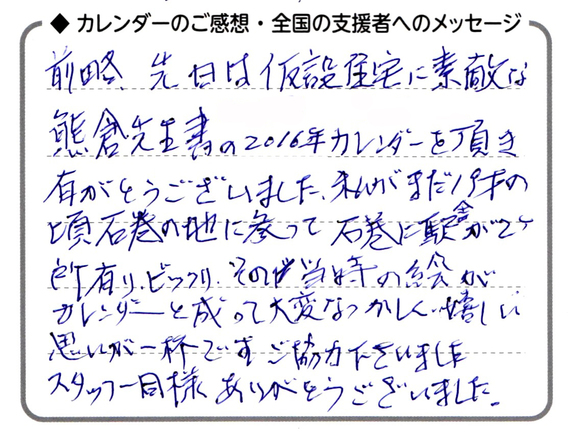 ◆ カレンダーのご感想・全国の支援者へのメッセージ
前略、先日は仮設住宅に素敵な
熊倉先生書の2016年カレンダーを頂き
有がとうございました、私がまだ19才の
頃石巻の地に参って石巻に駅舎が2ヶ
所有り、ビックリ、その当時の絵が
カレンダーと成って大変なつかしく嬉しい
思いが一杯です ご協力下さいました
スタッフ一同様 ありがとうございました。